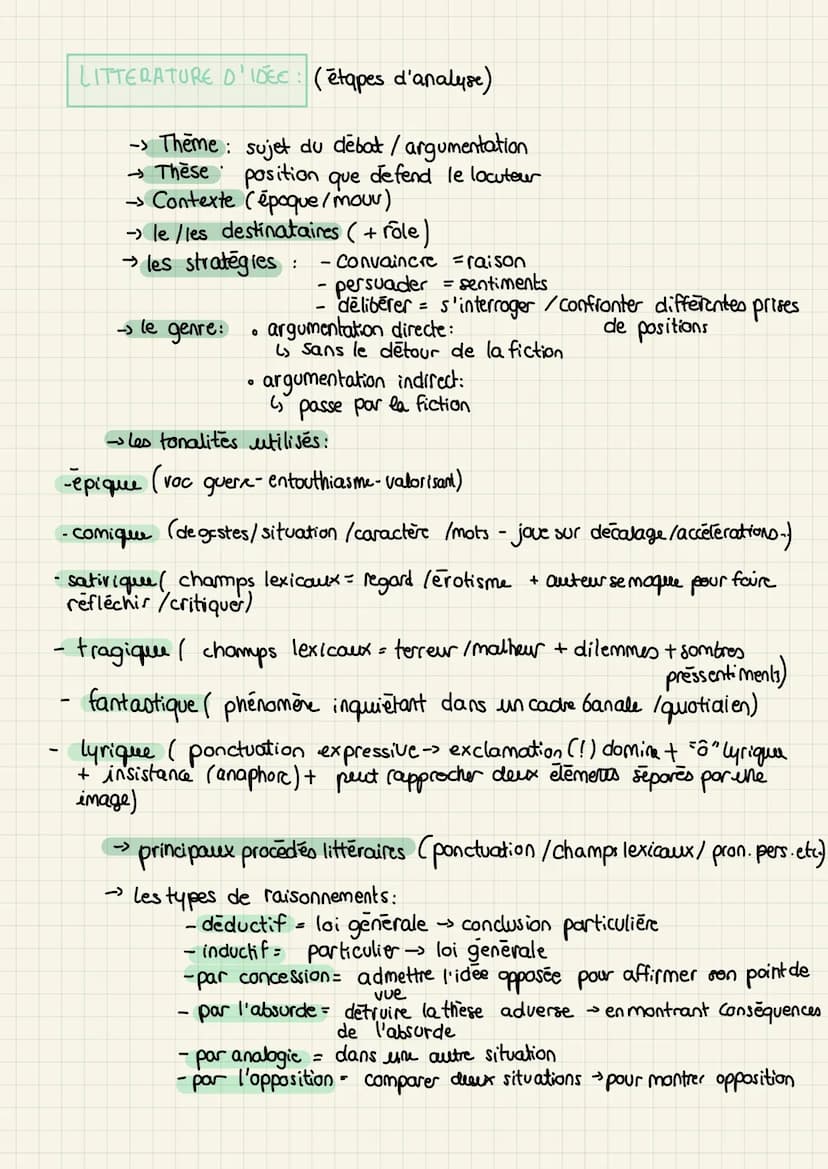 LITTERATURE D'IDEE : (étapes d'analyse)
-> Thème : sujet du débat / argumentation
→ Thèse : position que defend le locuteur
→ Contexte (époque/mouv)
→ le /les destinataires ( + rôle)
→ les stratégies : - convaincre = raison
- persuader = sentiments
- délibérer = s'interroger / confronter différentes prises
de positions
→ le genre: • argumentation directe:
↳ sans le détour de la fiction
• argumentation indirect:
↳ passe par la fiction
→ les tonalités utilisés:
-épique (voc guerre- entouthiasme- valorisant)
- comique (de gestes/ situation /caractère /mots - joue sur décalage/accélérations-)
- satirique ( champs lexicaux = regard /érotisme + auteur se moque pour faire
réfléchir /critiquer)
- tragique ( champs lexicaux = terreur /malheur + dilemmes + sombres
préssentiments)
- fantastique ( phénomène inquiétant dans un cadre banale /quotidien)
- lyrique ( ponctuation expressive -> exclamation (!) domine + "ô" lyrique
+ insistance (anaphore) + peut rapprocher deux éléments séparés par une
image)
→ principaux procédés littéraires (ponctuation /champs lexicaux/ pron. pers. etc)
→ les types de raisonnements:
- déductif = loi générale → conclusion particulière
- inductif = particulier → loi générale
-par concession= admettre l'idée opposée pour affirmer son point de
vue
- par l'absurde = détruire la thèse adverse → en montrant conséquences
de l'absurde
- par analogie = dans une autre situation
- par l'opposition - comparer deux situations → pour montrer opposition